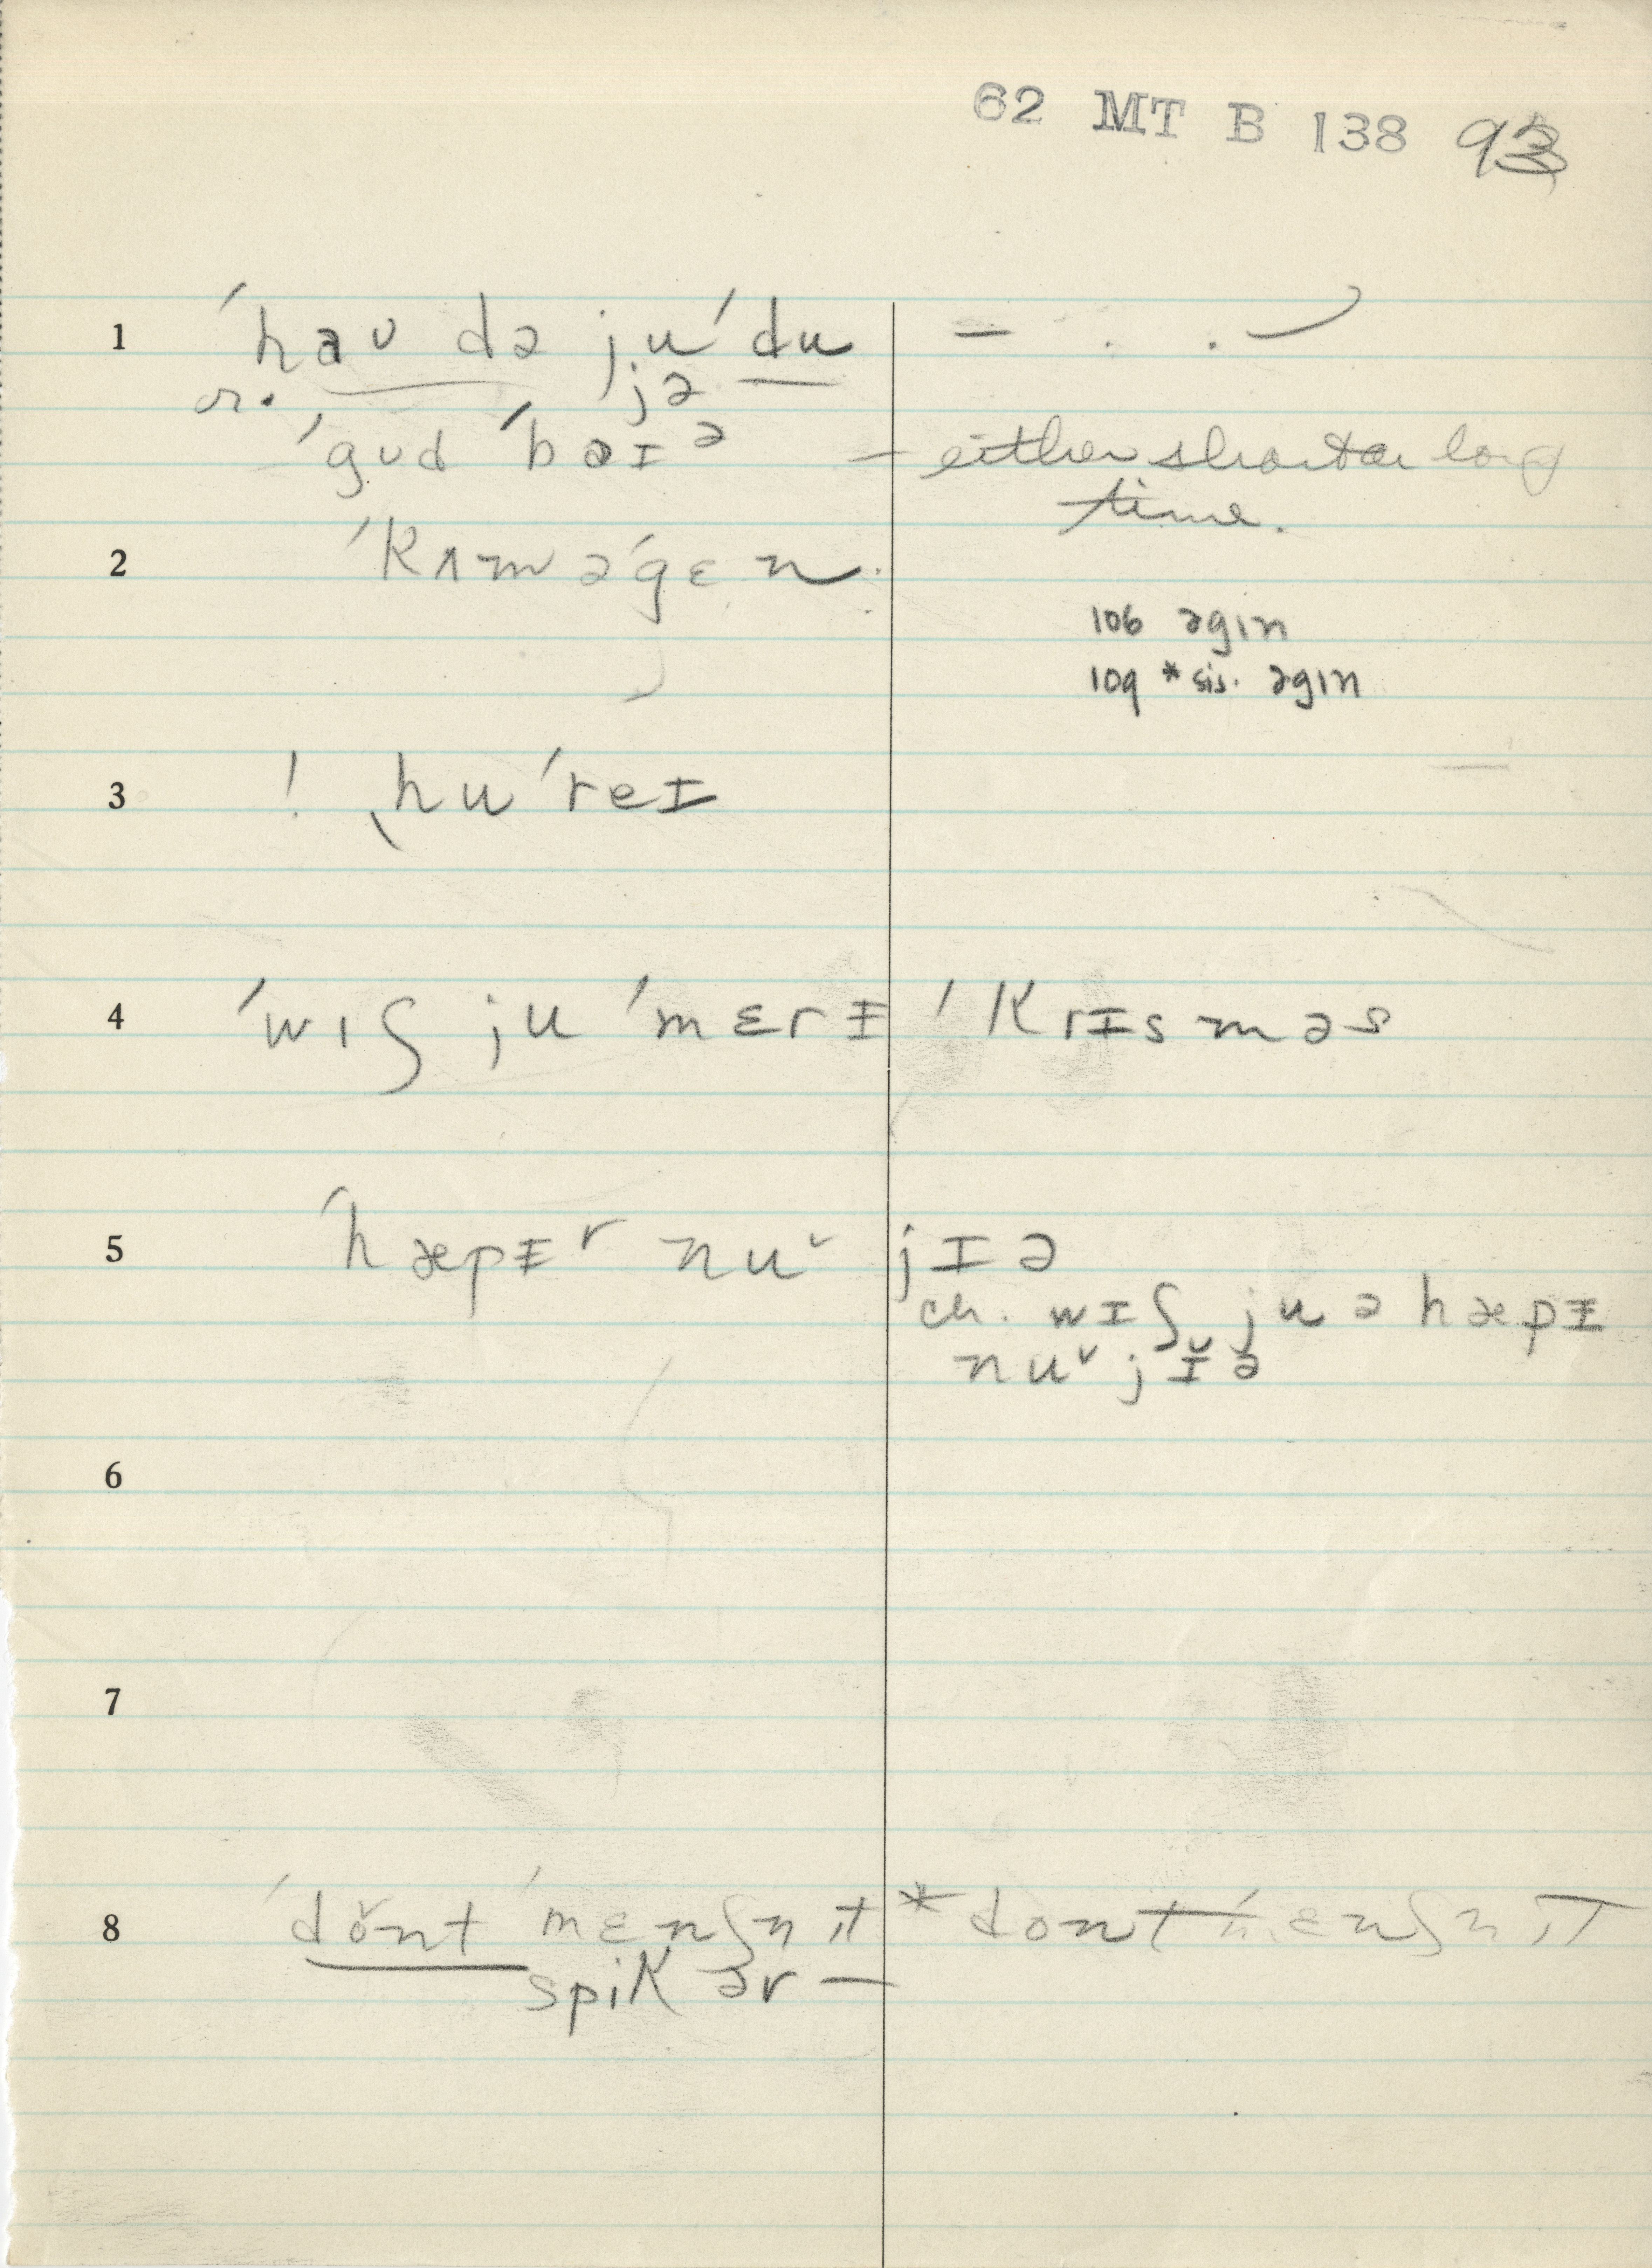 62 MT B 138 93
1 ˈhaʊ də ju ˈdu – . . ⟋
or. jə
ˈgʊd ˈbaɪə – either short or long
time.
2 ˈkʌm əˈgɛn.
106 əgɪn
109 * sis. əgɪn
3 ! ˌhuˈreɪ
4 ˈwɪʃ ju ˈmɛrɪ ˈkrɪsməs
5 ˈhæpɪr nuˇ jɪə
ch. wɪʃ ju ə hæpɪ
nuˇ jɪ̆ə
6
7
8 ˈdŏnt ˈmɛnʃn̩ ɪt * dont ˈmɛnʃn̩ ɪt
spik ər –